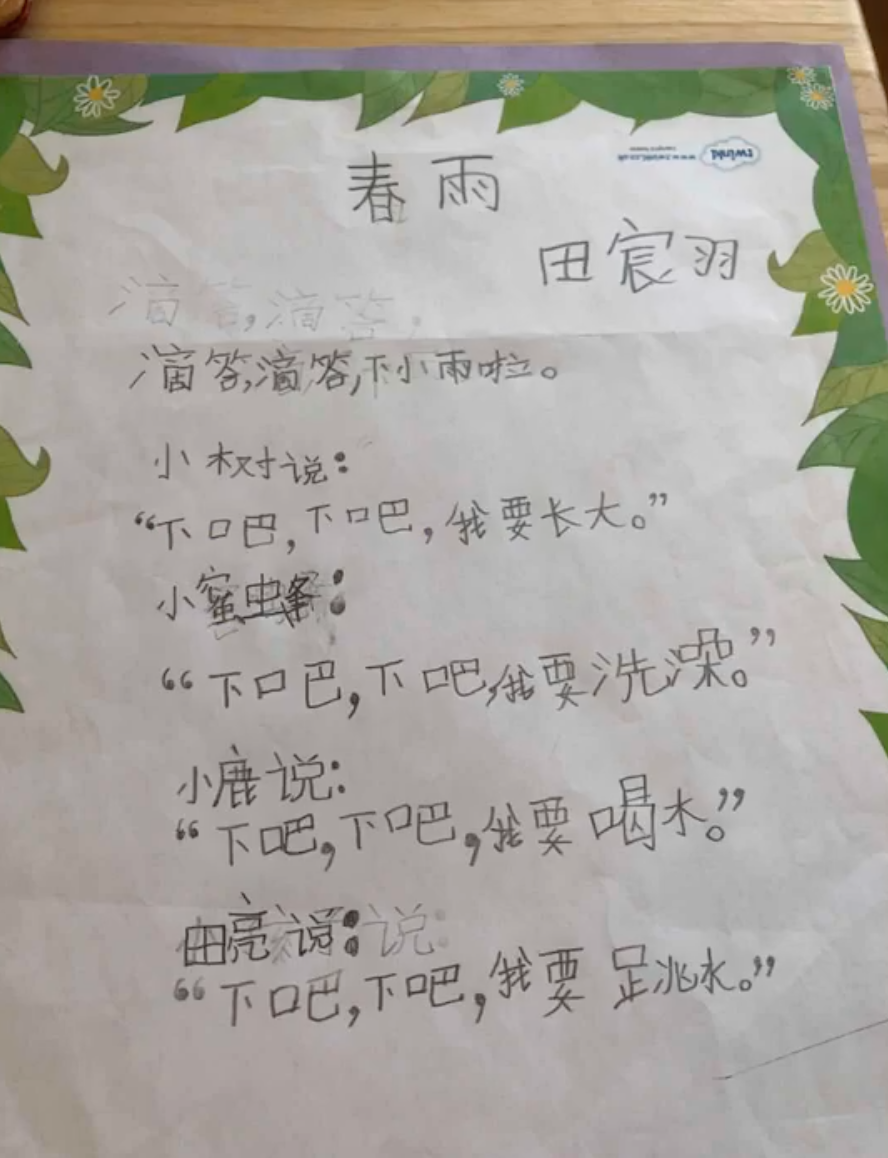 twinkl
www.twinkl.co.uk
春雨
田宸羽
滴答,滴答,
滴答,滴答,下小雨啦。
小树说:
“下吧,下吧,我要长大。”
小蜜:
“下吧,下吧,我要洗澡。”
小鹿说:
“下吧,下吧,我要喝水。”
田亮说:说:
“下吧,下吧,我要跳水。”